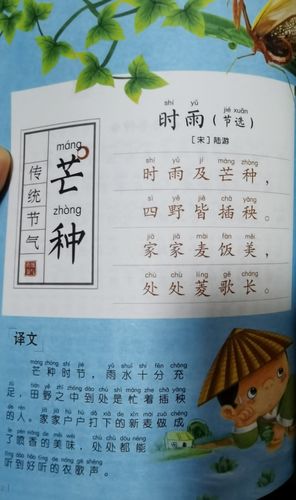 máng
芒
zhòng
种
传统节气
shí yǔ jié xuǎn
时雨(节选)
[宋]陆游
shí yǔ jí máng zhòng
时雨及芒种，
sì yě jiē chā yāng
四野皆插秧。
jiā jiā mài fàn měi
家家麦饭美，
chù chù líng gē cháng
处处菱歌长。
译文
máng zhòng shí jié yǔ shuǐ shí fēn chōng
芒种时节，雨水十分充
zú tián yě zhī zhōng dào chù shì máng zhe chā yāng
足，田野之中到处是忙着插秧
de rén jiā jiā hù hù dǎ xià de xīn mài zuò chéng
的人。家家户户打下的新麦做成
le pēn xiāng de měi wèi chù chù dōu néng
了喷香的美味，处处都能
tīng dào hǎo tīng de nóng gē shēng
听到好听的农歌声。